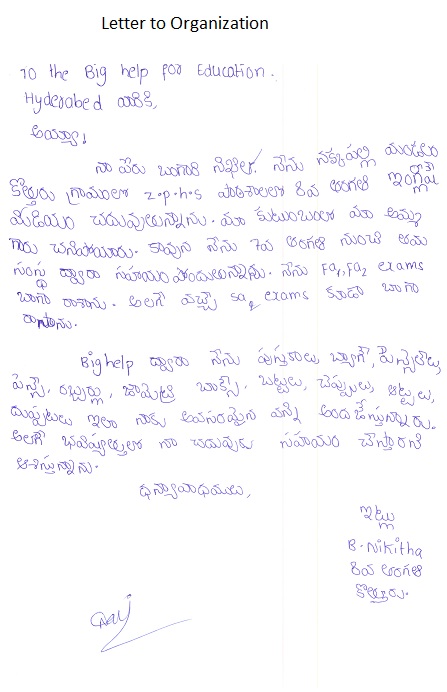 Letter to Organization
To the Big help for Education.
Hyderabed వారికి,
అయ్యా!
నా పేరు బంగారి నిఖిత. నేను నక్కపల్లి మండలం
కొత్తూరు గ్రామంలో z.p.h.s పాఠశాలలో 8వ తరగతి ఇంగ్లీషు
మీడియం చదువుతున్నాను. మా కుటుంబంలో మా అమ్మ
గారు చనిపోయారు. కావున నేను 7వ తరగతి నుంచి ఈ
సంస్థ ద్వారా సహాయం పొందుతున్నాను. నేను Fa1, Fa2 exams
బాగా రాశాను. అలాగే వచ్చే sa2 exams కూడా బాగా
రాస్తాను.
Bighelp ద్వారా నేను పుస్తకాలు, బ్యాగ్, పెన్సిల్లు,
పెన్స్, రబ్బర్లు, జామెట్రి బాక్స్, బట్టలు, చెప్పులు, అట్టలు,
దుప్పటులు ఇలా నాకు అవసరమైన వన్ని అందజేస్తున్నారు.
అలాగే భవిష్యత్తులో నా చదువుకు సహాయం చేస్తారని
ఆశిస్తున్నాను.
ధన్యావాధములు,
ఇట్లు
B. Nikitha
8వ తరగతి
కొత్తూరు.